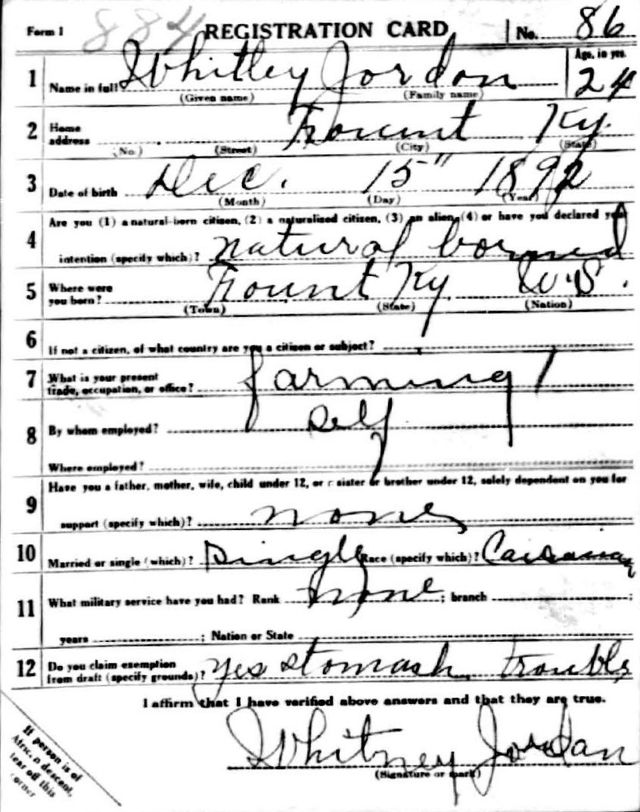 Form 1 884 REGISTRATION CARD No. 86
1 Name in full Whitley Jordon Age, in yrs. 24
(Given name) (Family name)
2 Home address Fount Ky.
(No.) (Street) (City) (State)
3 Date of birth Dec. 15" 1892
(Month) (Day) (Year)
Are you (1) a natural-born citizen, (2) a naturalized citizen, (3) an alien, (4) or have you declared your
4 intention (specify which)? natural borned
5 Where were you born? Fount Ky U.S.
(Town) (State) (Nation)
6 If not a citizen, of what country are you a citizen or subject?
7 What is your present trade, occupation, or office? farming
8 By whom employed? Self
Where employed?
Have you a father, mother, wife, child under 12, or a sister or brother under 12, solely dependent on you for
9 support (specify which)? none
10 Married or single (which)? Single Race (specify which)?
11 What military service have you had? Rank none ; branch ;
years ; Nation or State
12 Do you claim exemption from draft (specify grounds)? Yes stomash trouble
I affirm that I have verified above answers and that they are true.
Whitney Jordan
(Signature or mark)
If person is of
African descent,
tear off this
corner